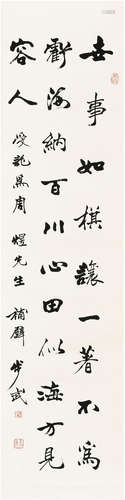 世事如棋讓一著不爲
虧海納百川心田似海方見
容人
受託爲周煜先生 補壁 步武